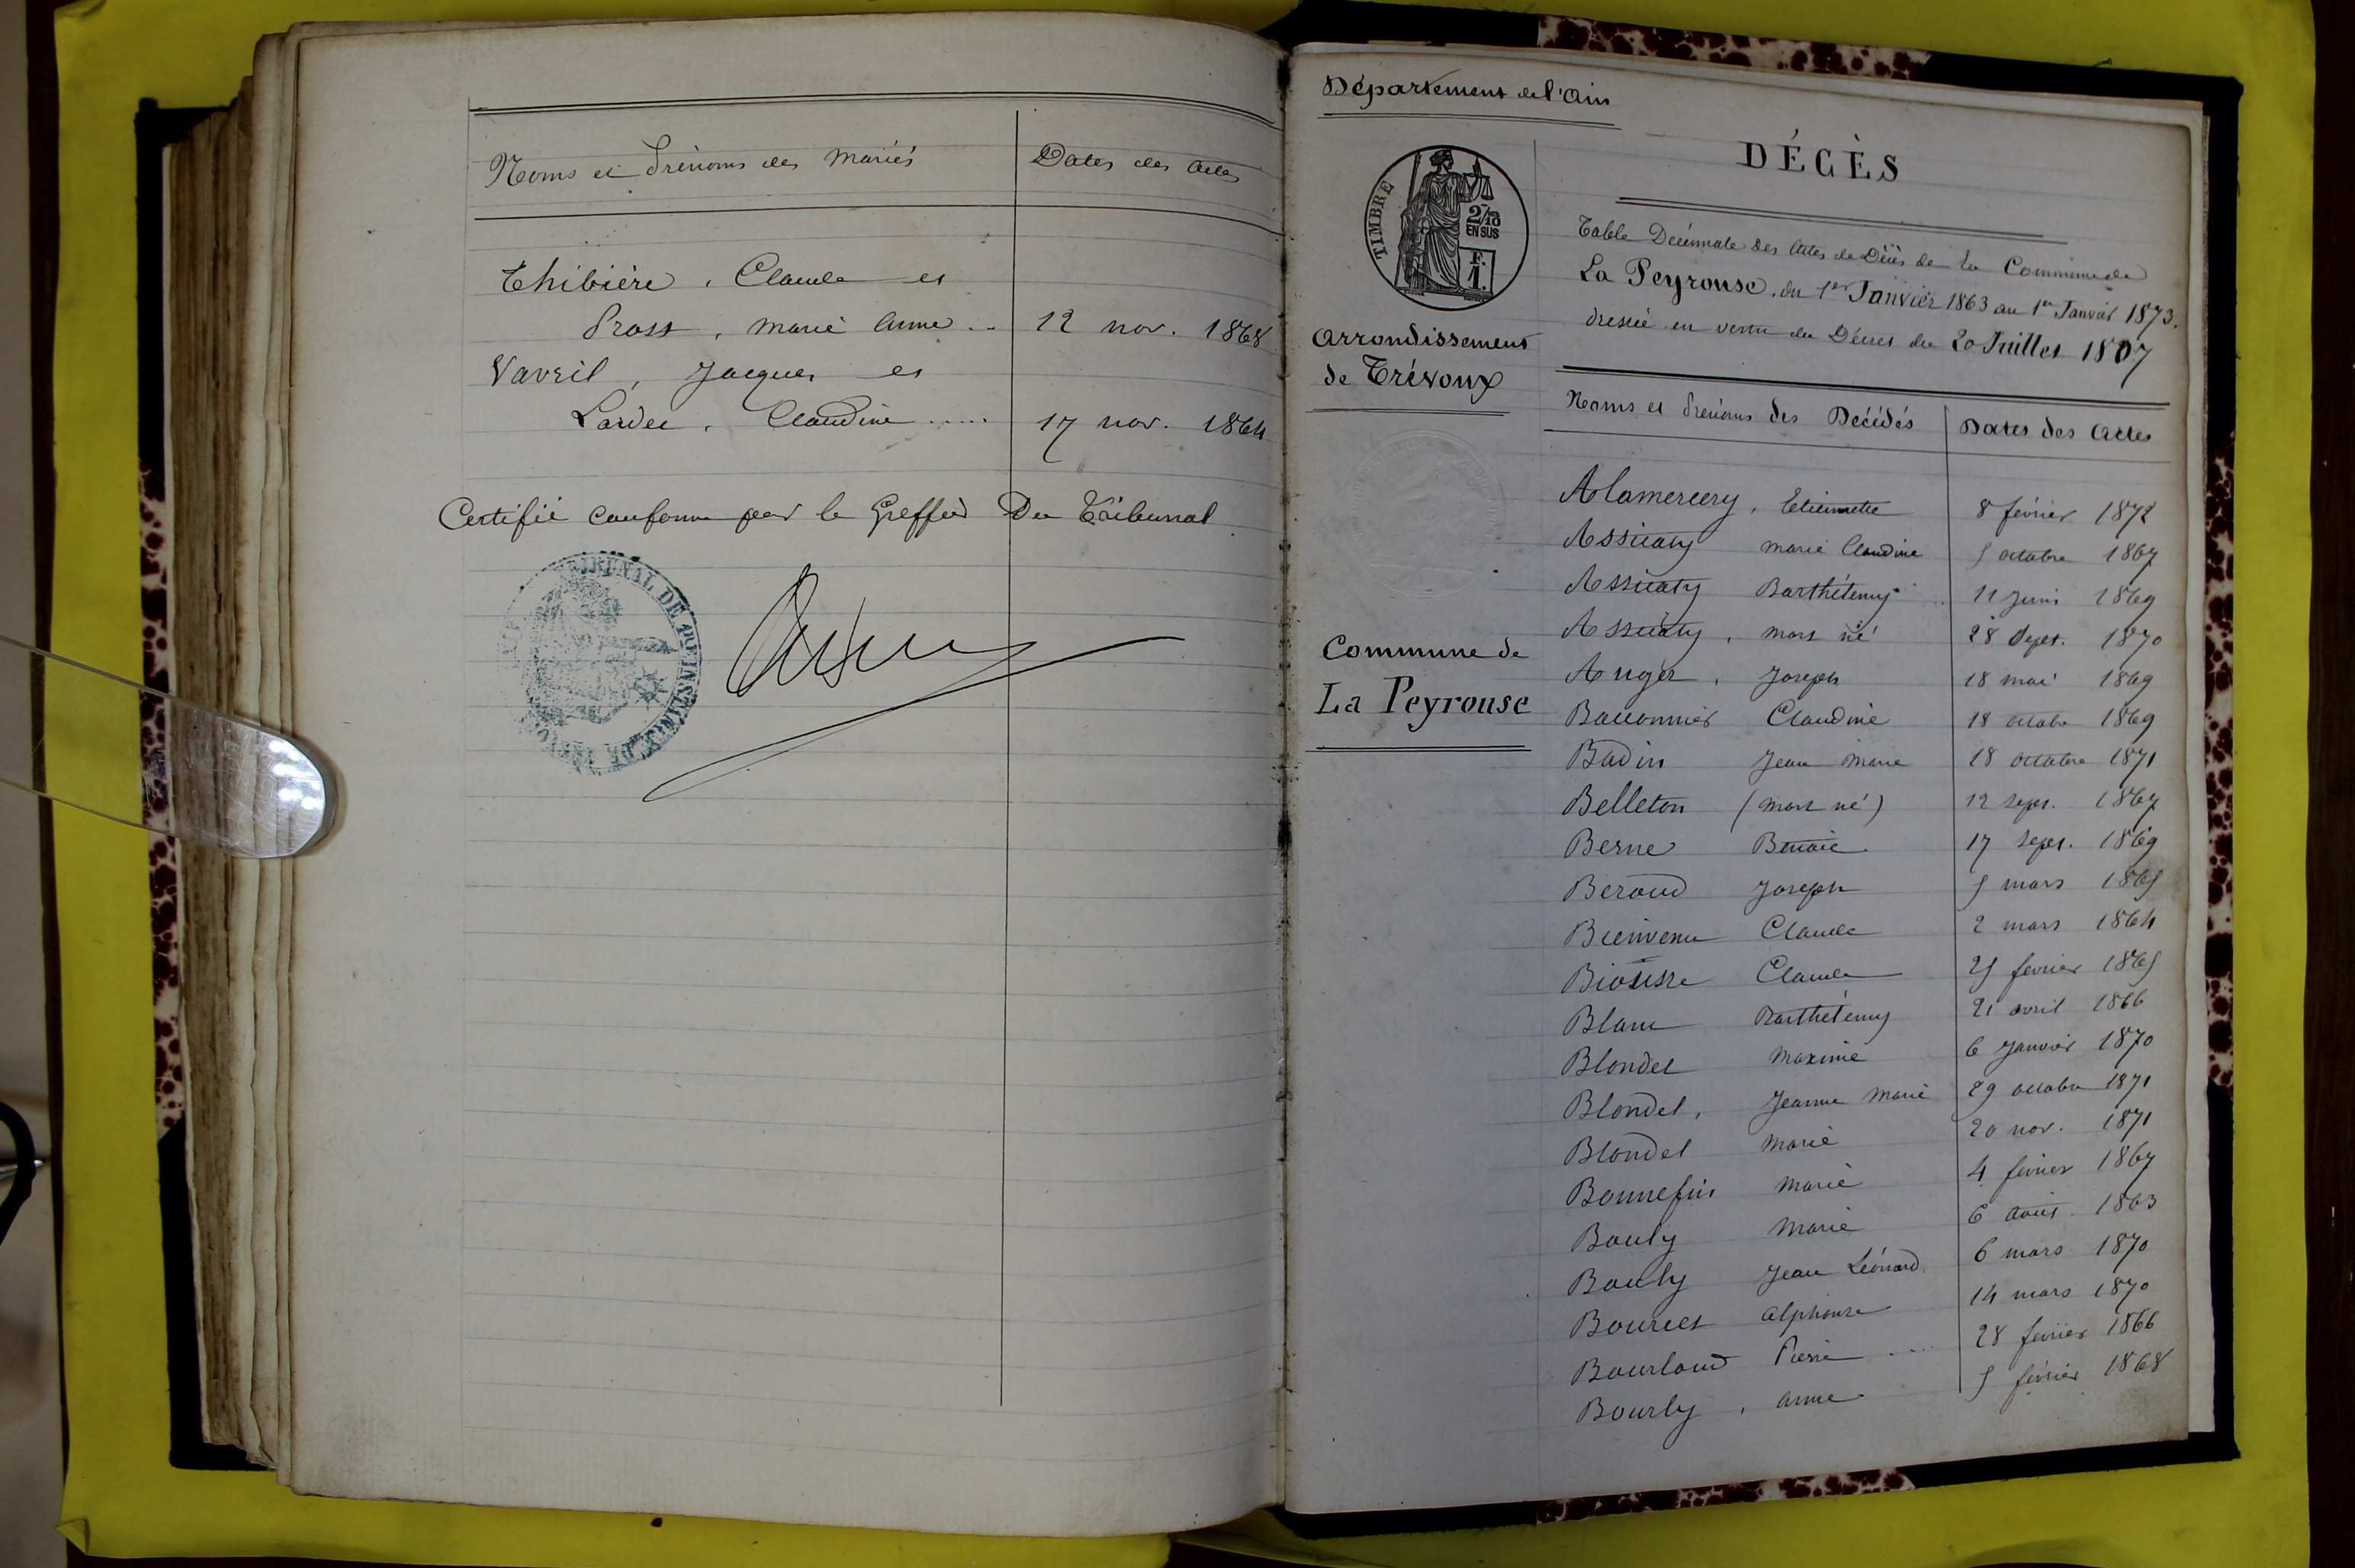 Noms et Prénoms des Mariés Dates des Actes
Thibière, Claude et
Pross, Marie Anne .. 12 nov. 1868
Vavril, Jacques et
Lardet, Claudine ..... 17 nov. 1864
Certifié conforme par le Greffier Du Tribunal
TRIBUNAL DE 1RE INSTANCE DE
Département de l'Ain
TIMBRE
2/10
EN SUS
F.
1.
Arrondissement
de Trévoux
Commune de
La Peyrouse
DÉCÈS
Table Décennale des Actes de Décès de la Commune de
La Peyrouse, du 1er Janvier 1863 au 1er Janvier 1873.
dressée en vertu du Décret du 20 Juillet 1807
Noms et Prénoms des Décédés Dates des Actes
Alamercery, Etiennette 8 février 1872
Assicaty Marie Claudine 5 octobre 1867
Assicaty Barthélemy 11 Juin 1869
Assicaty, mort né 28 sept. 1870
Auger, Joseph 18 mai 1869
Bauonnier Claudine 18 octobre 1869
Badin Jean Marie 18 octobre 1871
Belleton (mort né) 12 sept. 1867
Berne Benoie 17 sept. 1869
Beroud Joseph 5 mars 1865
Bienvenu Claude 2 mars 1864
Biousse Claude 25 février 1865
Blanc Barthélemy 21 avril 1866
Blondel Maxime 6 Janvier 1870
Blondel, Jeanne Marie 29 octobre 1871
Blondel Marie 20 nov. 1871
Bonnefin Marie 4 février 1867
Bouly Marie 6 août 1863
Bouly Jean Léonard 6 mars 1870
Bourcet Alphonse 14 mars 1870
Bourloud Pierre .... 28 février 1866
Bourly, Anne 5 février 1868